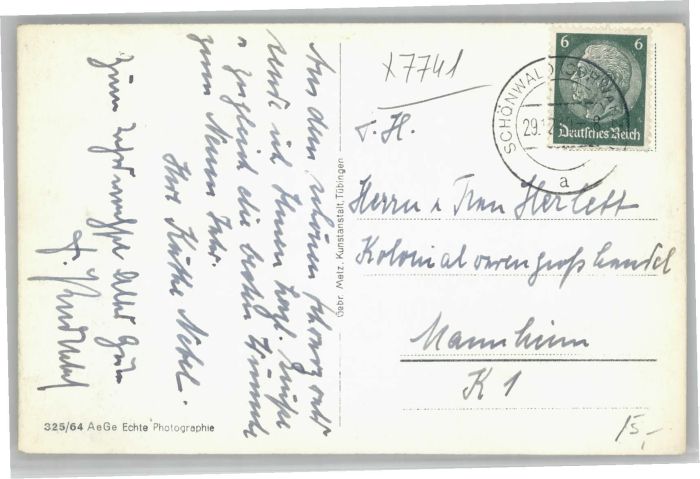 Aus dem schönen Schwarzwald
sende ich Ihnen herzl. Grüße
u. zugleich die besten Wünsche
zum Neuen Jahr.
Ihre Käthe Nebel.
Zum Jahreswechsel Alles Gute
Gebr. Metz, Kunstanstalt, Tübingen
x7741
SCHÖNWALD (SCHW
29.12
a
6 6
Deutsches Reich
F. H.
Herrn u Frau Herlett
Kolonialwarengroßhandel
Mannheim
K 1
15,-
325/64 AeGe Echte Photographie